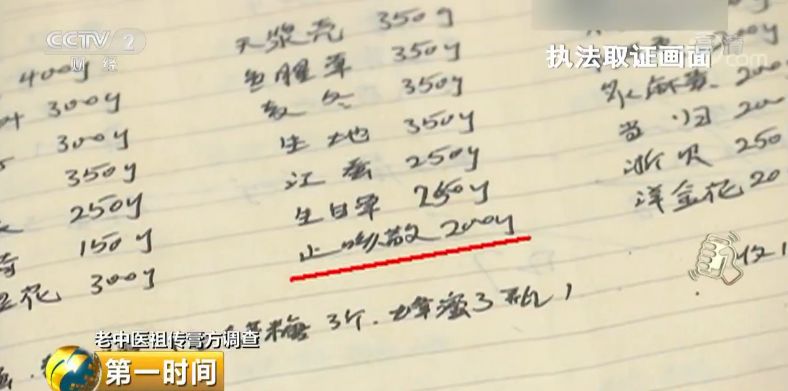 CCTV 2
财经
执法取证画面
400g
300g
300g
350g
250g
150g
花 300g
天浆壳 350g
鱼腥草 350g
麦冬 350g
生地 350g
江蚕 250g
250g
止咳散 200g
麻黄 200
当归 200
浙贝 250
洋金花 20
糖 3个. 蜂蜜 3瓶!
老中医祖传膏方调查
第一时间